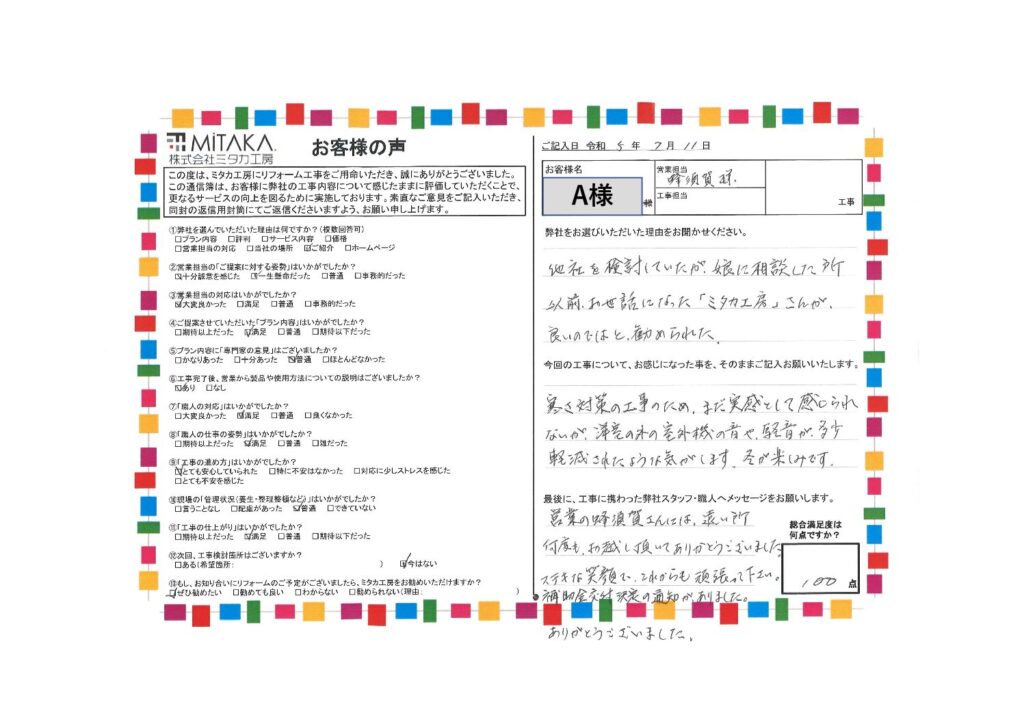 MITAKA
株式会社ミタカ工房
お客様の声
この度は、ミタカ工房にリフォーム工事をご用命いただき、誠にありがとうございました。
この通信簿は、お客様に弊社の工事内容について感じたままに評価していただくことで、
更なるサービスの向上を図るために実施しております。素直なご意見をご記入いただき、
同封の返信用封筒にてご返信くださいますよう、お願い申し上げます。
①弊社を選んでいただいた理由は何ですか?(複数回答可)
□プラン内容 □評判 □サービス内容 □価格
□営業担当の対応 □当社の場所 ☑ご紹介 □ホームページ
②営業担当の「ご提案に対する姿勢」はいかがでしたか?
☑十分誠意を感じた ☑一生懸命だった □普通 □事務的だった
③営業担当の対応はいかがでしたか?
☑大変良かった □満足 □普通 □事務的だった
④ご提案させていただいた「プラン内容」はいかがでしたか?
□期待以上だった ☑満足 □普通 □期待以下だった
⑤プラン内容に「専門家の意見」はございましたか?
□かなりあった □十分あった ☑普通 □ほとんどなかった
⑥工事完了後、営業から製品や使用方法についての説明はございましたか?
☑あり □なし
⑦「職人の対応」はいかがでしたか?
□大変良かった ☑満足 □普通 □良くなかった
⑧「職人の仕事の姿勢」はいかがでしたか?
□期待以上だった ☑満足 □普通 □雑だった
⑨「工事の進め方」はいかがでしたか?
☑とても安心していられた □特に不安はなかった □対応に少しストレスを感じた
□とても不安を感じた
⑩現場の「管理状況(養生・整理整頓など)」はいかがでしたか?
□言うことなし □配慮があった ☑普通 □できていない
⑪「工事の仕上がり」はいかがでしたか?
□期待以上だった ☑満足 □普通 □期待以下だった
⑫次回、工事検討箇所はございますか?
□ある(希望箇所: ) ☑今はない
⑬もし、お知り合いにリフォームのご予定がございましたら、ミタカ工房をお勧めいただけますか?
☑ぜひ勧めたい □勧めても良い □わからない □勧められない(理由: )
ご記入日 令和 5 年 7 月 11 日
お客様名
A様
様
営業担当
蜂須賀 様.
工事担当
工事
弊社をお選びいただいた理由をお聞かせください。
他社を検討していたが、娘に相談した所
以前お世話になった「ミタカ工房」さんが、
良いのではと、勧められた。
今回の工事について、お感じになった事を、そのままご記入お願いいたします。
寒さ対策の工事のため、まだ実感として感じられ
ないが、薄壱の木の室外機の音や、騒音が、多少
軽減されたような気がします。冬が楽しみです。
最後に、工事に携わった弊社スタッフ・職人へメッセージをお願いします。
営業の蜂須賀さんには、遠い所
何度も、お越し頂いてありがとうございました。
ステキな笑顔で、これからも頑張って下さい。
補助金交付決定の通知がありました。
ありがとうございました。
総合満足度は
何点ですか?
100 点